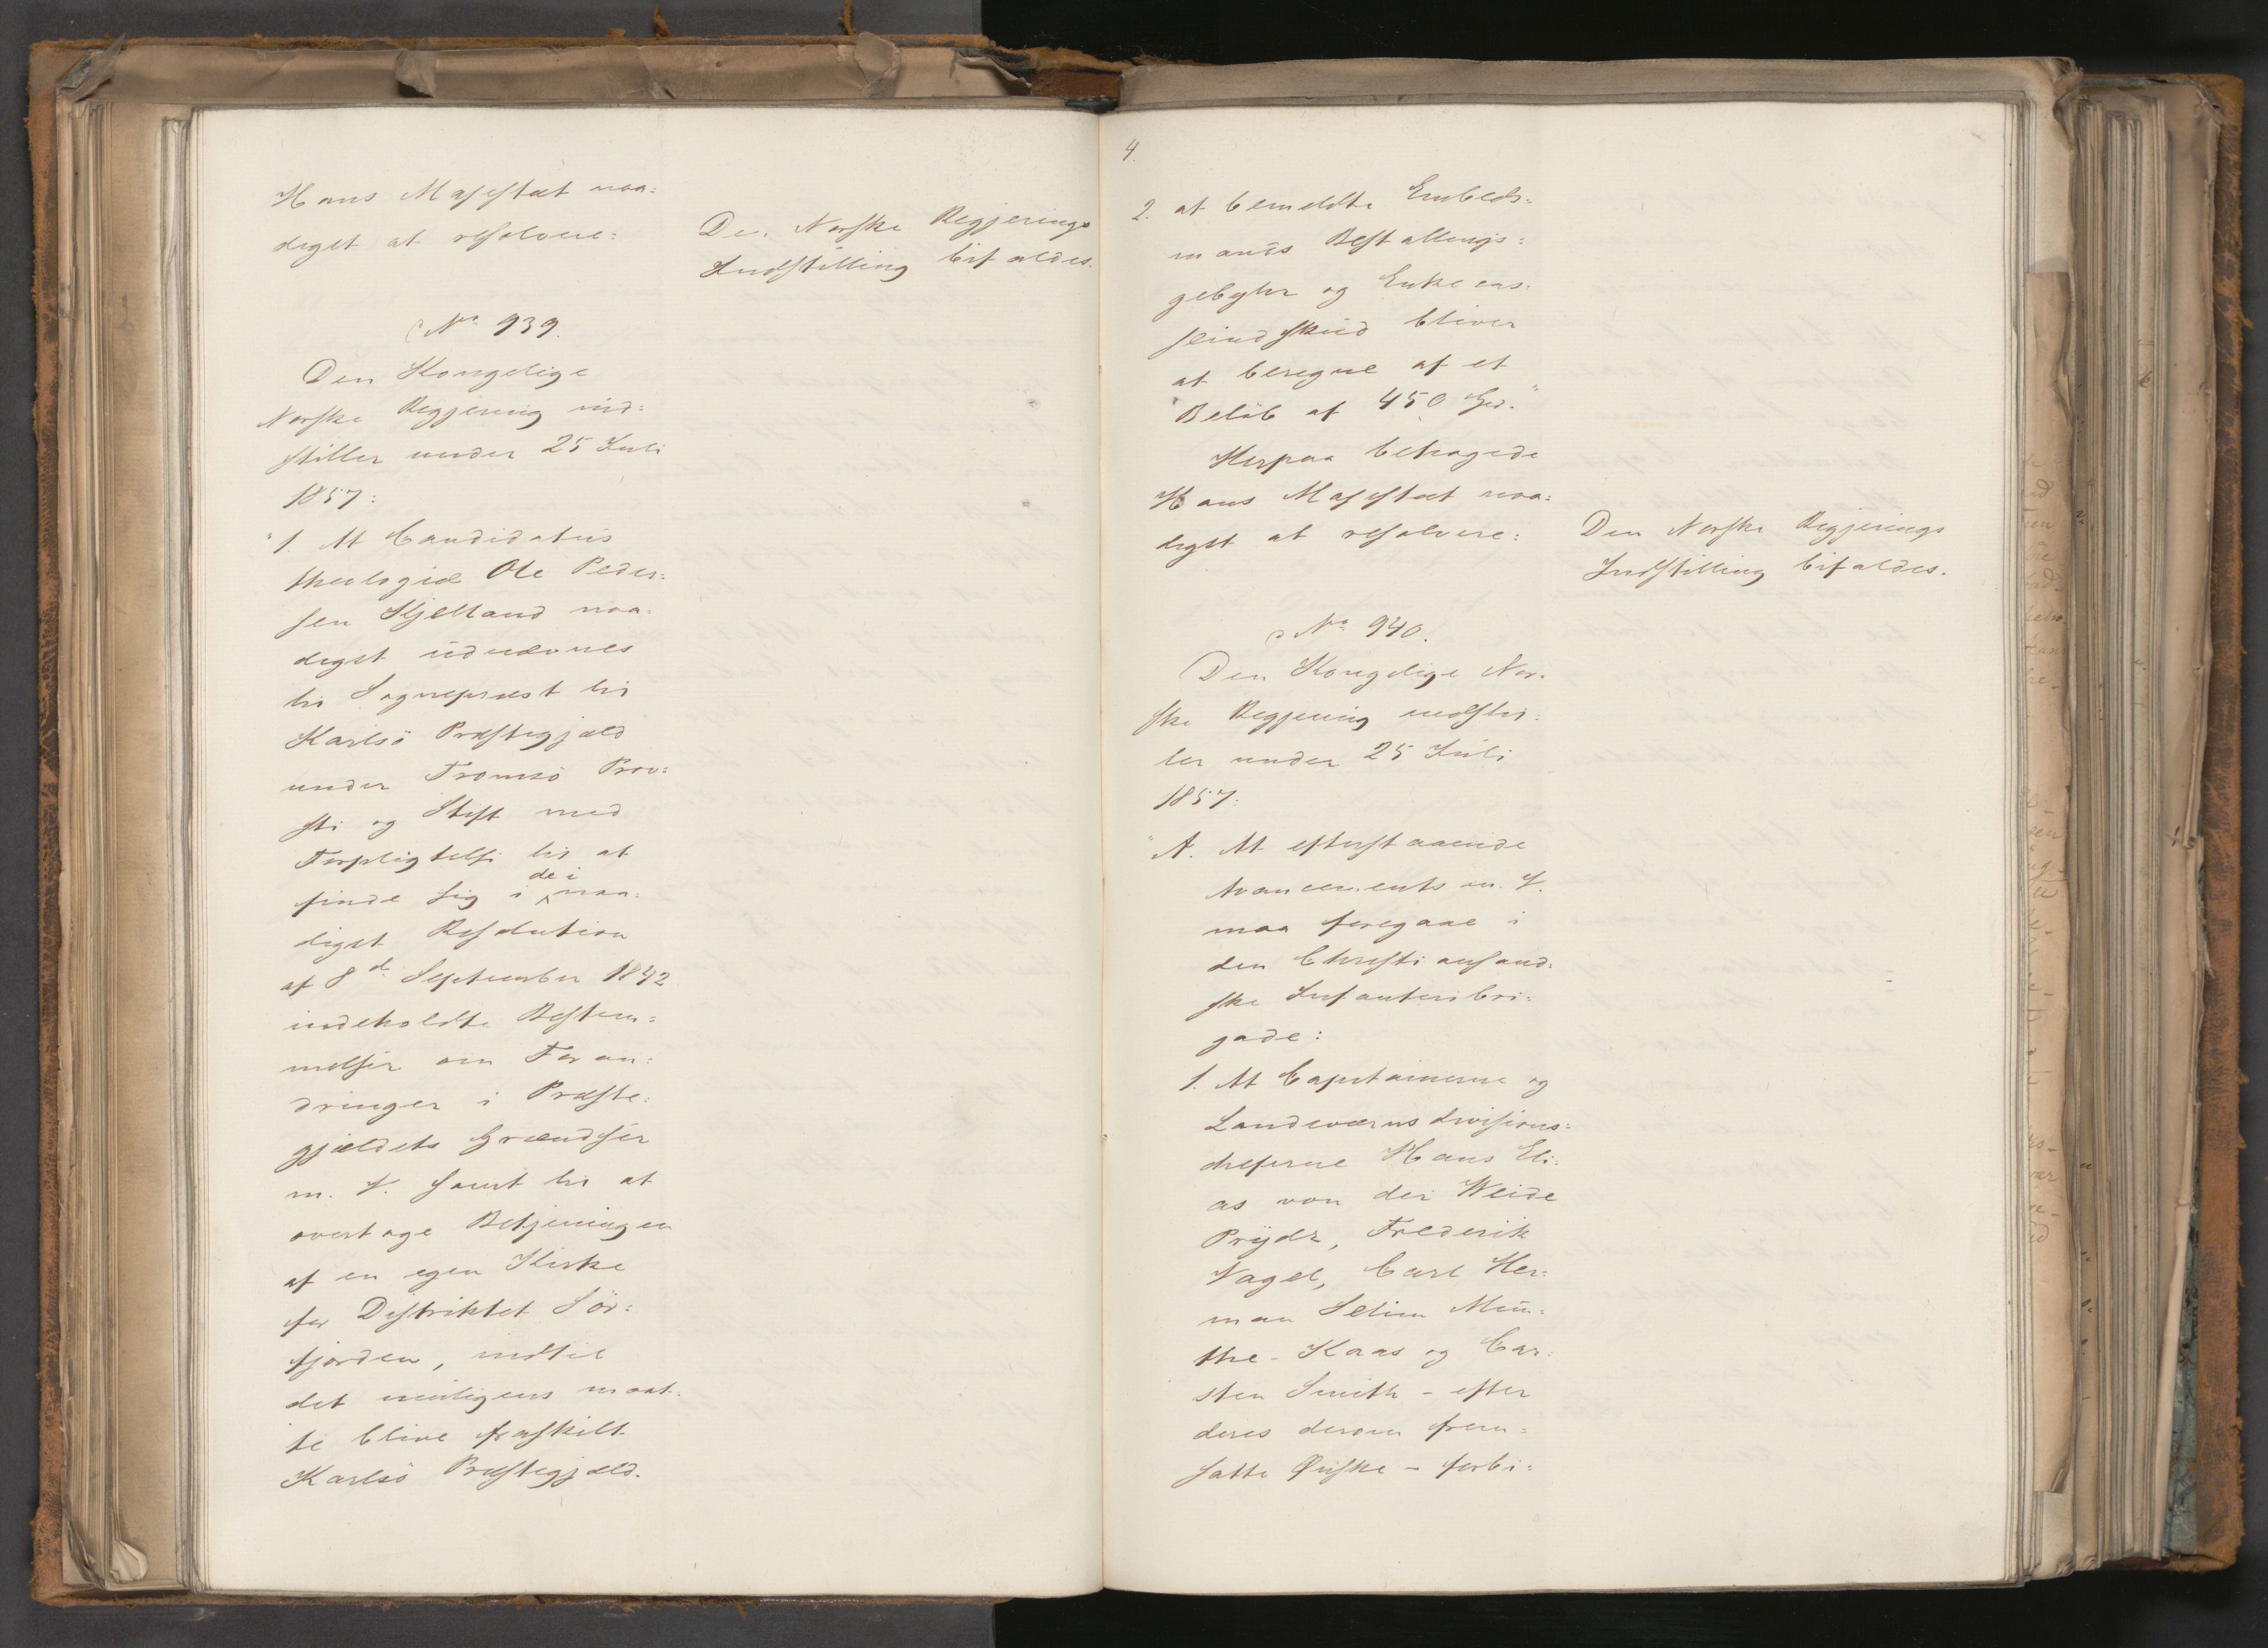 Hans Majestæt naa=
digst at resolvere:
Den Norske Regjerings
Indstilling bifaldes.
No 939.
Den Kongelige
Norske Regjering ind=
stiller under 25 Juli
1857:
"1. At Candidatus
theologiæ Ole Peder=
sen Kjelland naa=
digst udnævnes
til Sognepræst til
Karlsö Præstegjæld
under Tromsö Prov=
sti og Stift med
Forpligtelse til at
finde sig i de i naa=
digst Resolution
af 8de September 1842
indeholdte Bestem=
melser om Foran=
dringer i Præste=
gjældets Grændser
m. V. samt til at
overtage Betjeningen
af en egen Kirke
for Distriktet Sör=
fjorden, indtil
det muligens maat=
te blive fraskilt
Karlsö Præstegjæld.
4.
2. at bemeldte Embeds=
mands Bestallings=
gebyhr og Enkecas=
seindskud bliver
at beregne af et
Beløb af 450 Spd."
Herpaa behagede
Hans Majestæt naa=
digst at resolvere:
Den Norske Regjerings
Indstilling bifaldes.
No 940.
Den Kongelige Nor=
ske Regjering indstil=
ler under 25 Juli
1857:
"A. At efterstaaende
Avancements m. V.
maa foregaae i
den Christiansand=
ske Infanteribri=
gade:
1. At Capitainerne og
Landeværnsdivisions=
cheferne Hans Eli=
as von der Weide
Prydz, Frederik
Nagel, Carl Her=
man Selim Mün=
the-Kaas og Car=
sten Smith - efter
deres derom frem=
satte Ønske - forbi=